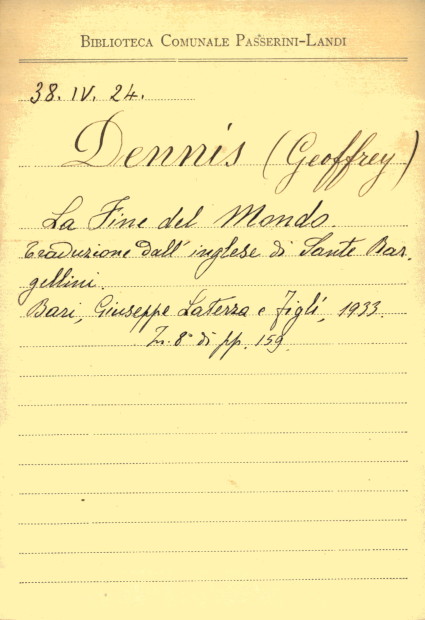 BIBLIOTECA COMUNALE PASSERINI-LANDI
38. IV. 24.
Dennis (Geoffrey)
La Fine del Mondo.
Traduzione dall'inglese di Sante Bar-
gellini.
Bari, Giuseppe Laterza e Figli, 1933.
In 8° di pp. 159.